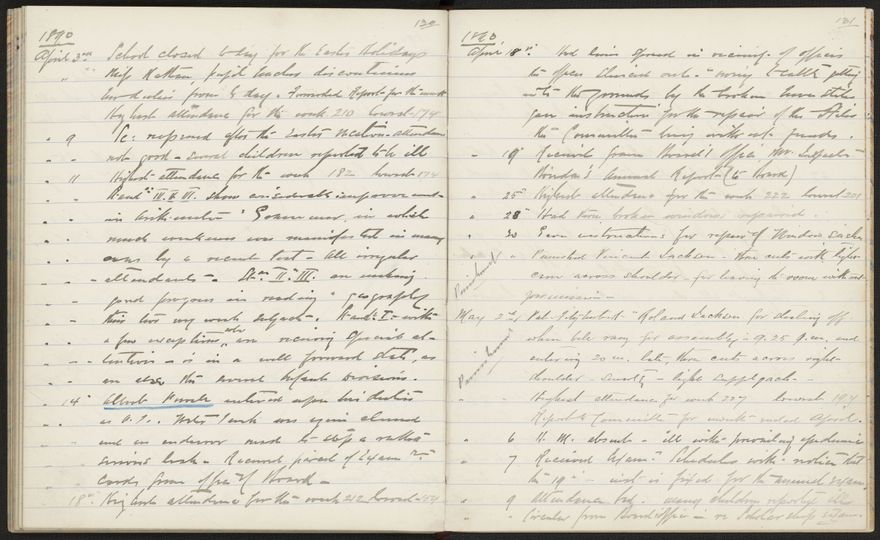 130
1890
April 3rd School closed today for the Easter Holidays
" " Miss Kattern pupil teacher discontinues
her duties from to day. Forwarded Report for the month
Highest attendance for the week 210 lowest 174
" 9 Sc: reopened after the Easter vacation attendance
" " not good - several children reported to be ill
" 11 Highest attendance for the week 182 lowest 174
" " III. II. VI. show considerable improvement
" " in Arithmetic & Grammar, in which
" " much weakness was manifested in many
" " cases by a recent test - All irregular
" " attendants - II & III are making
" " good progress in reading & geography
" " this two very weak subjects. I with
" " a few exceptions, who are receiving special at-
" " tention - is in a well forward state, as
" " are also the several Infant Divisions.
" 14 Albert entered upon his duties
" as P.T. Water Tank was again cleaned
and an endeavor made to stop a rather
serious leak. Received parcel of Exam
cards from office of Board.
18th Highest attendance for the week 212 lowest
131
1890
April 18th Had lines placed in vicinity of offices
the offices cleaned out owing to cattle getting
into the grounds by the broken fence. Have
given instructions for the repair of the
the Committee being without funds.
" 19th Received from Board's Office Mr. Inspector
Annual Report (to Board)
" 25 Highest attendance for the week 222 lowest 201
" 28 Had three broken windows repaired.
" 30 Gave instructions for repair of Window Sashes
Punishment
" " Punished Vincent Jackson. Three cuts with light
cane across shoulder - for leaving the room without
permission -
Punishment
May 2nd Roland Jackson for dealing off
when bell rang for assembly - 9.25 a.m. and
entering 20 m. late, three cuts across right
shoulder - light supple cane. -
" Highest attendance for week 227 lowest 197
Report to Committee for month ended April.
" 6 H. M. absent - ill with prevailing epidemic
" 7 Received Exam: Schedules with notice that
the 19th inst is fixed for the annual exam
" 9 Attendance bad. Many children reported ill
" Circular from Board's Office in re Scholarship exam